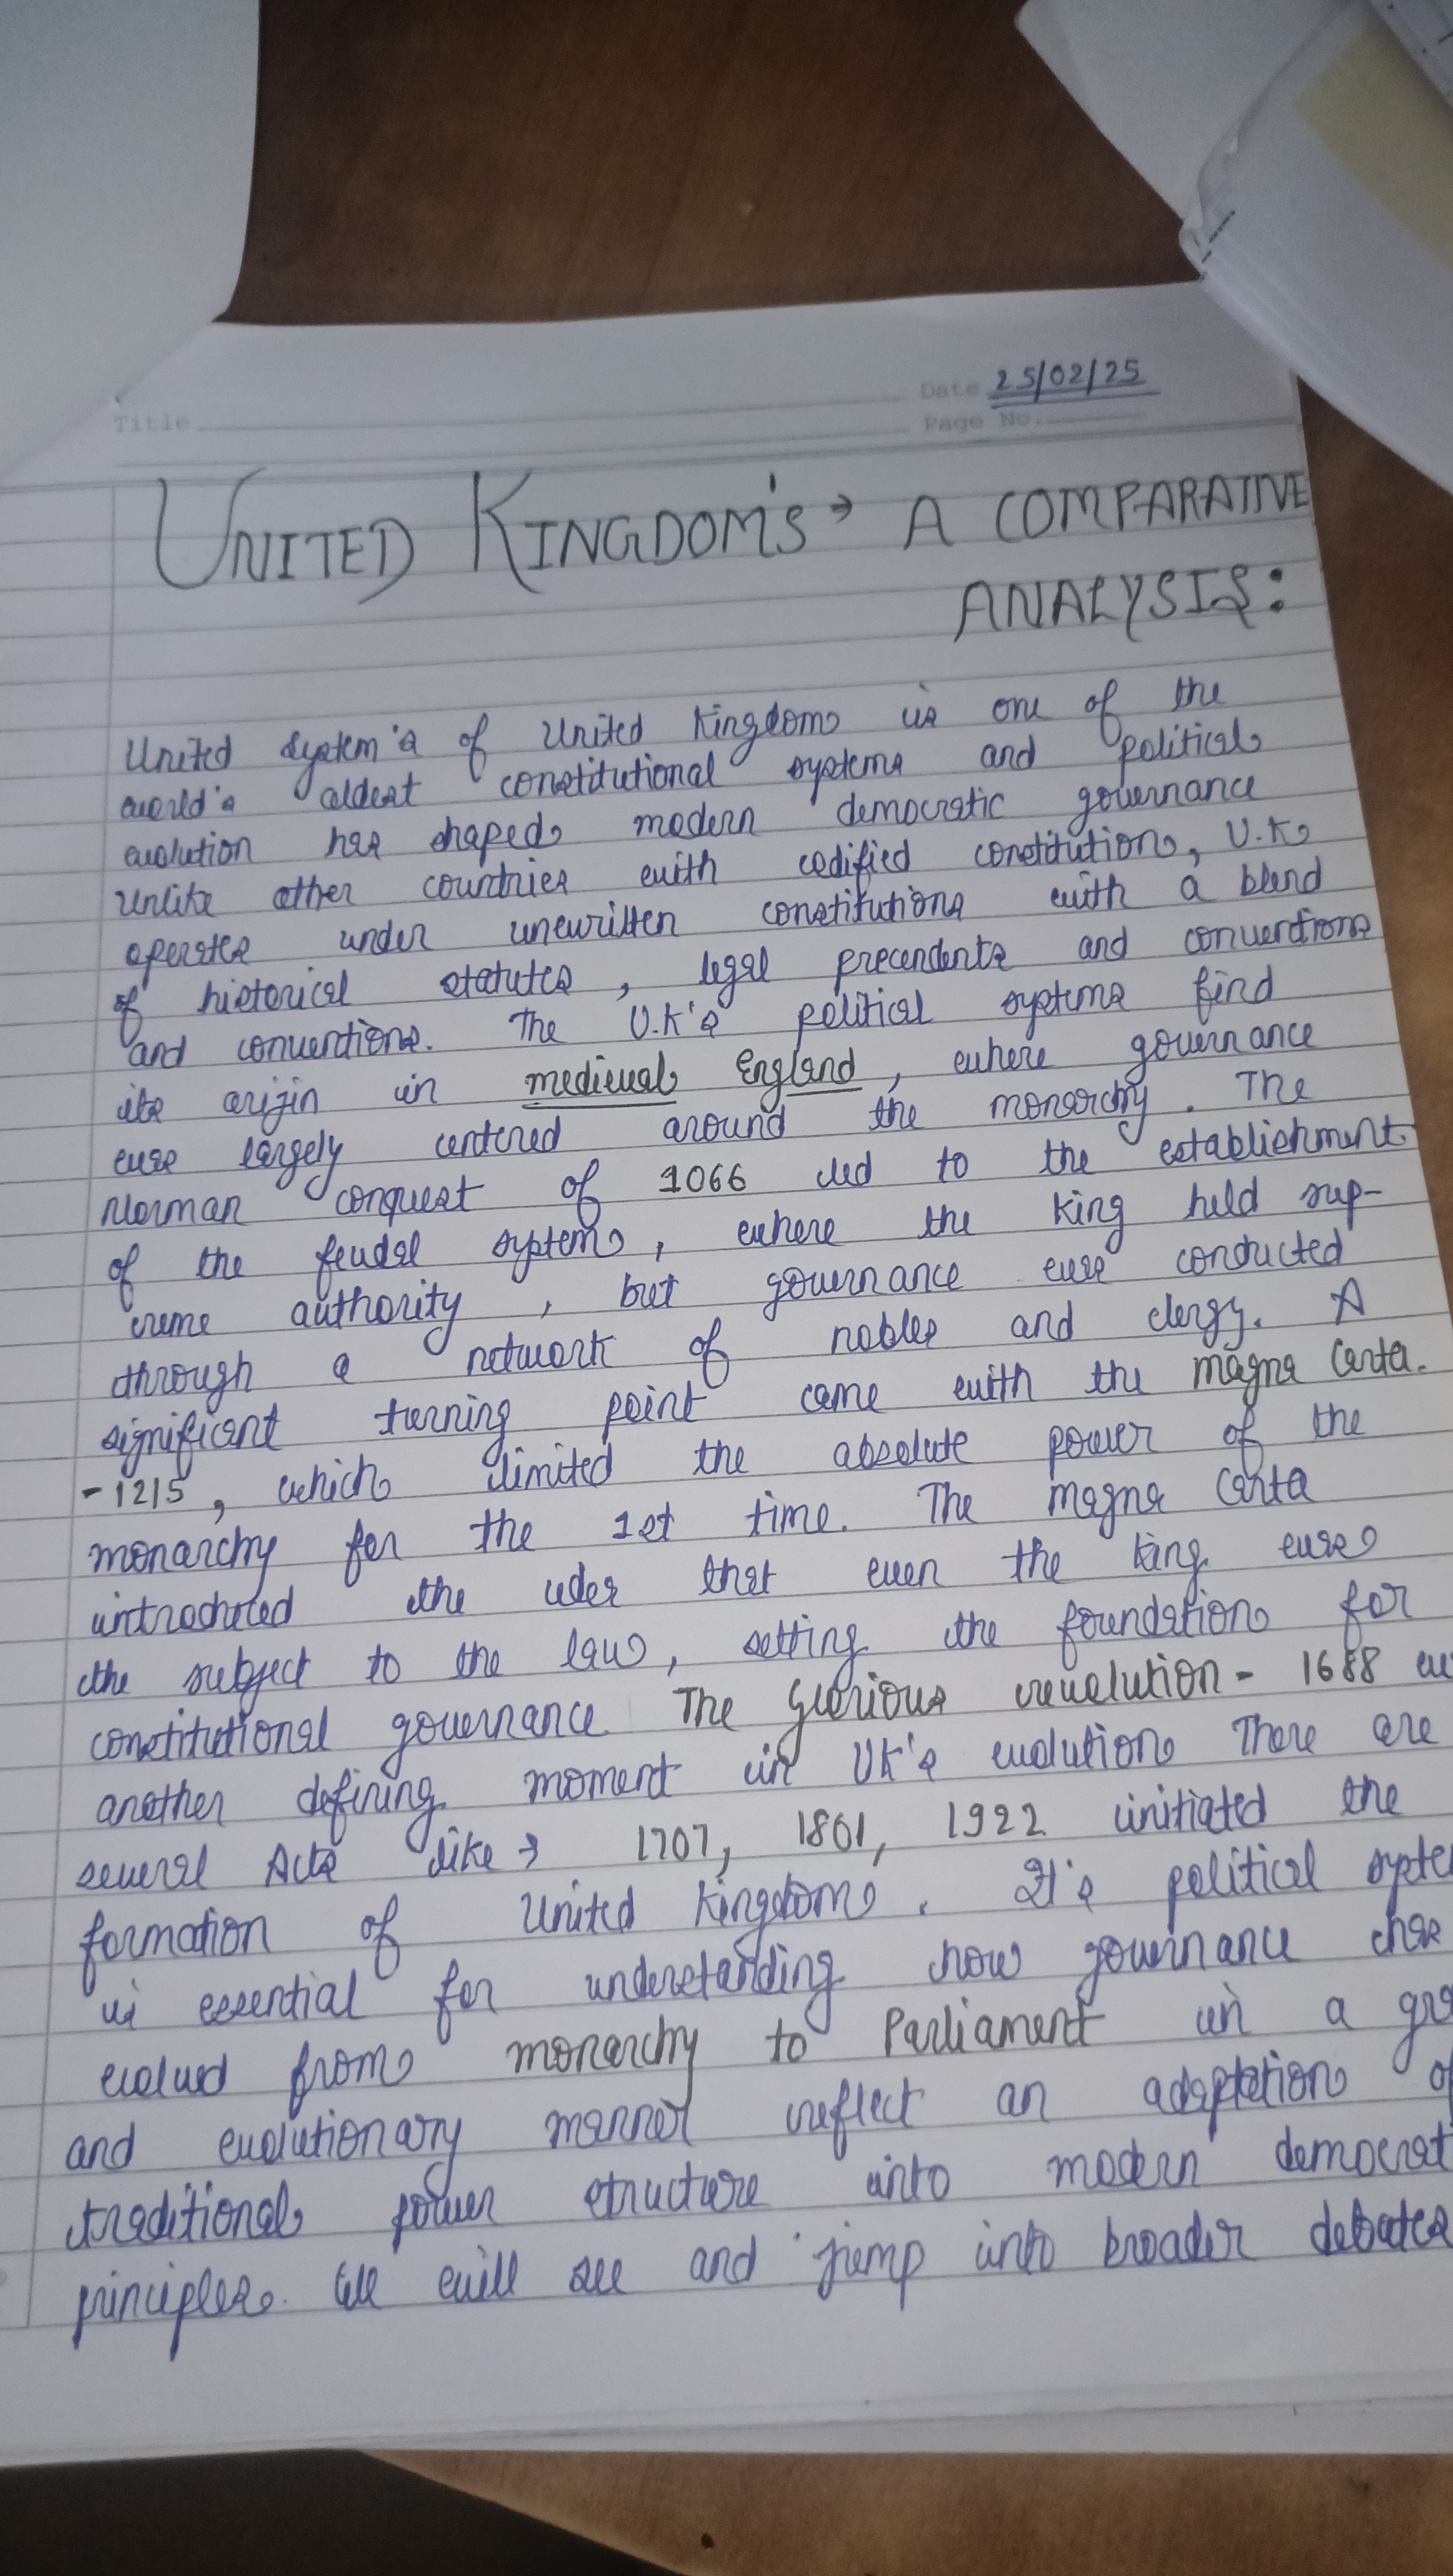 Title
Date 25/02/25
Page No.
UNITED KINGDOM'S → A COMPARATIVE
ANALYSIS:
United system's of United Kingdom is one of the
world's oldest constitutional systems and political
evolution has shaped modern democratic governance
Unlike other countries with codified constitution, U.K.
operates under unewritten constitutions with a blend
of historical statutes, legal precendents and conventions
and conventions. The U.K's political systems find
its origin in medieval England, where governance
was largely centered around the monarchy. The
Norman conquest of 1066 led to the establishment
of the feudal system, where the king held sup-
reme authority, but governance was conducted
through a network of nobles and clergy. A
significant turning point came with the Magna Carta.
-1215, which limited the absolute power of the
monarchy for the 1st time. The Magna Carta
introduced the idea that even the king was
the subject to the law, setting the foundation for
constitutional governance. The Glorious revolution - 1688
another defining moment in UK's evolution There are
several Acts like → 1707, 1801, 1922 initiated the
formation of United Kingdom. It's political
is essential for understanding how governance
evolved from monarchy to Parliament in a
and evolutionary manner reflect an adaptation
traditional power structure into modern
principles. We will see and jump into broader debates